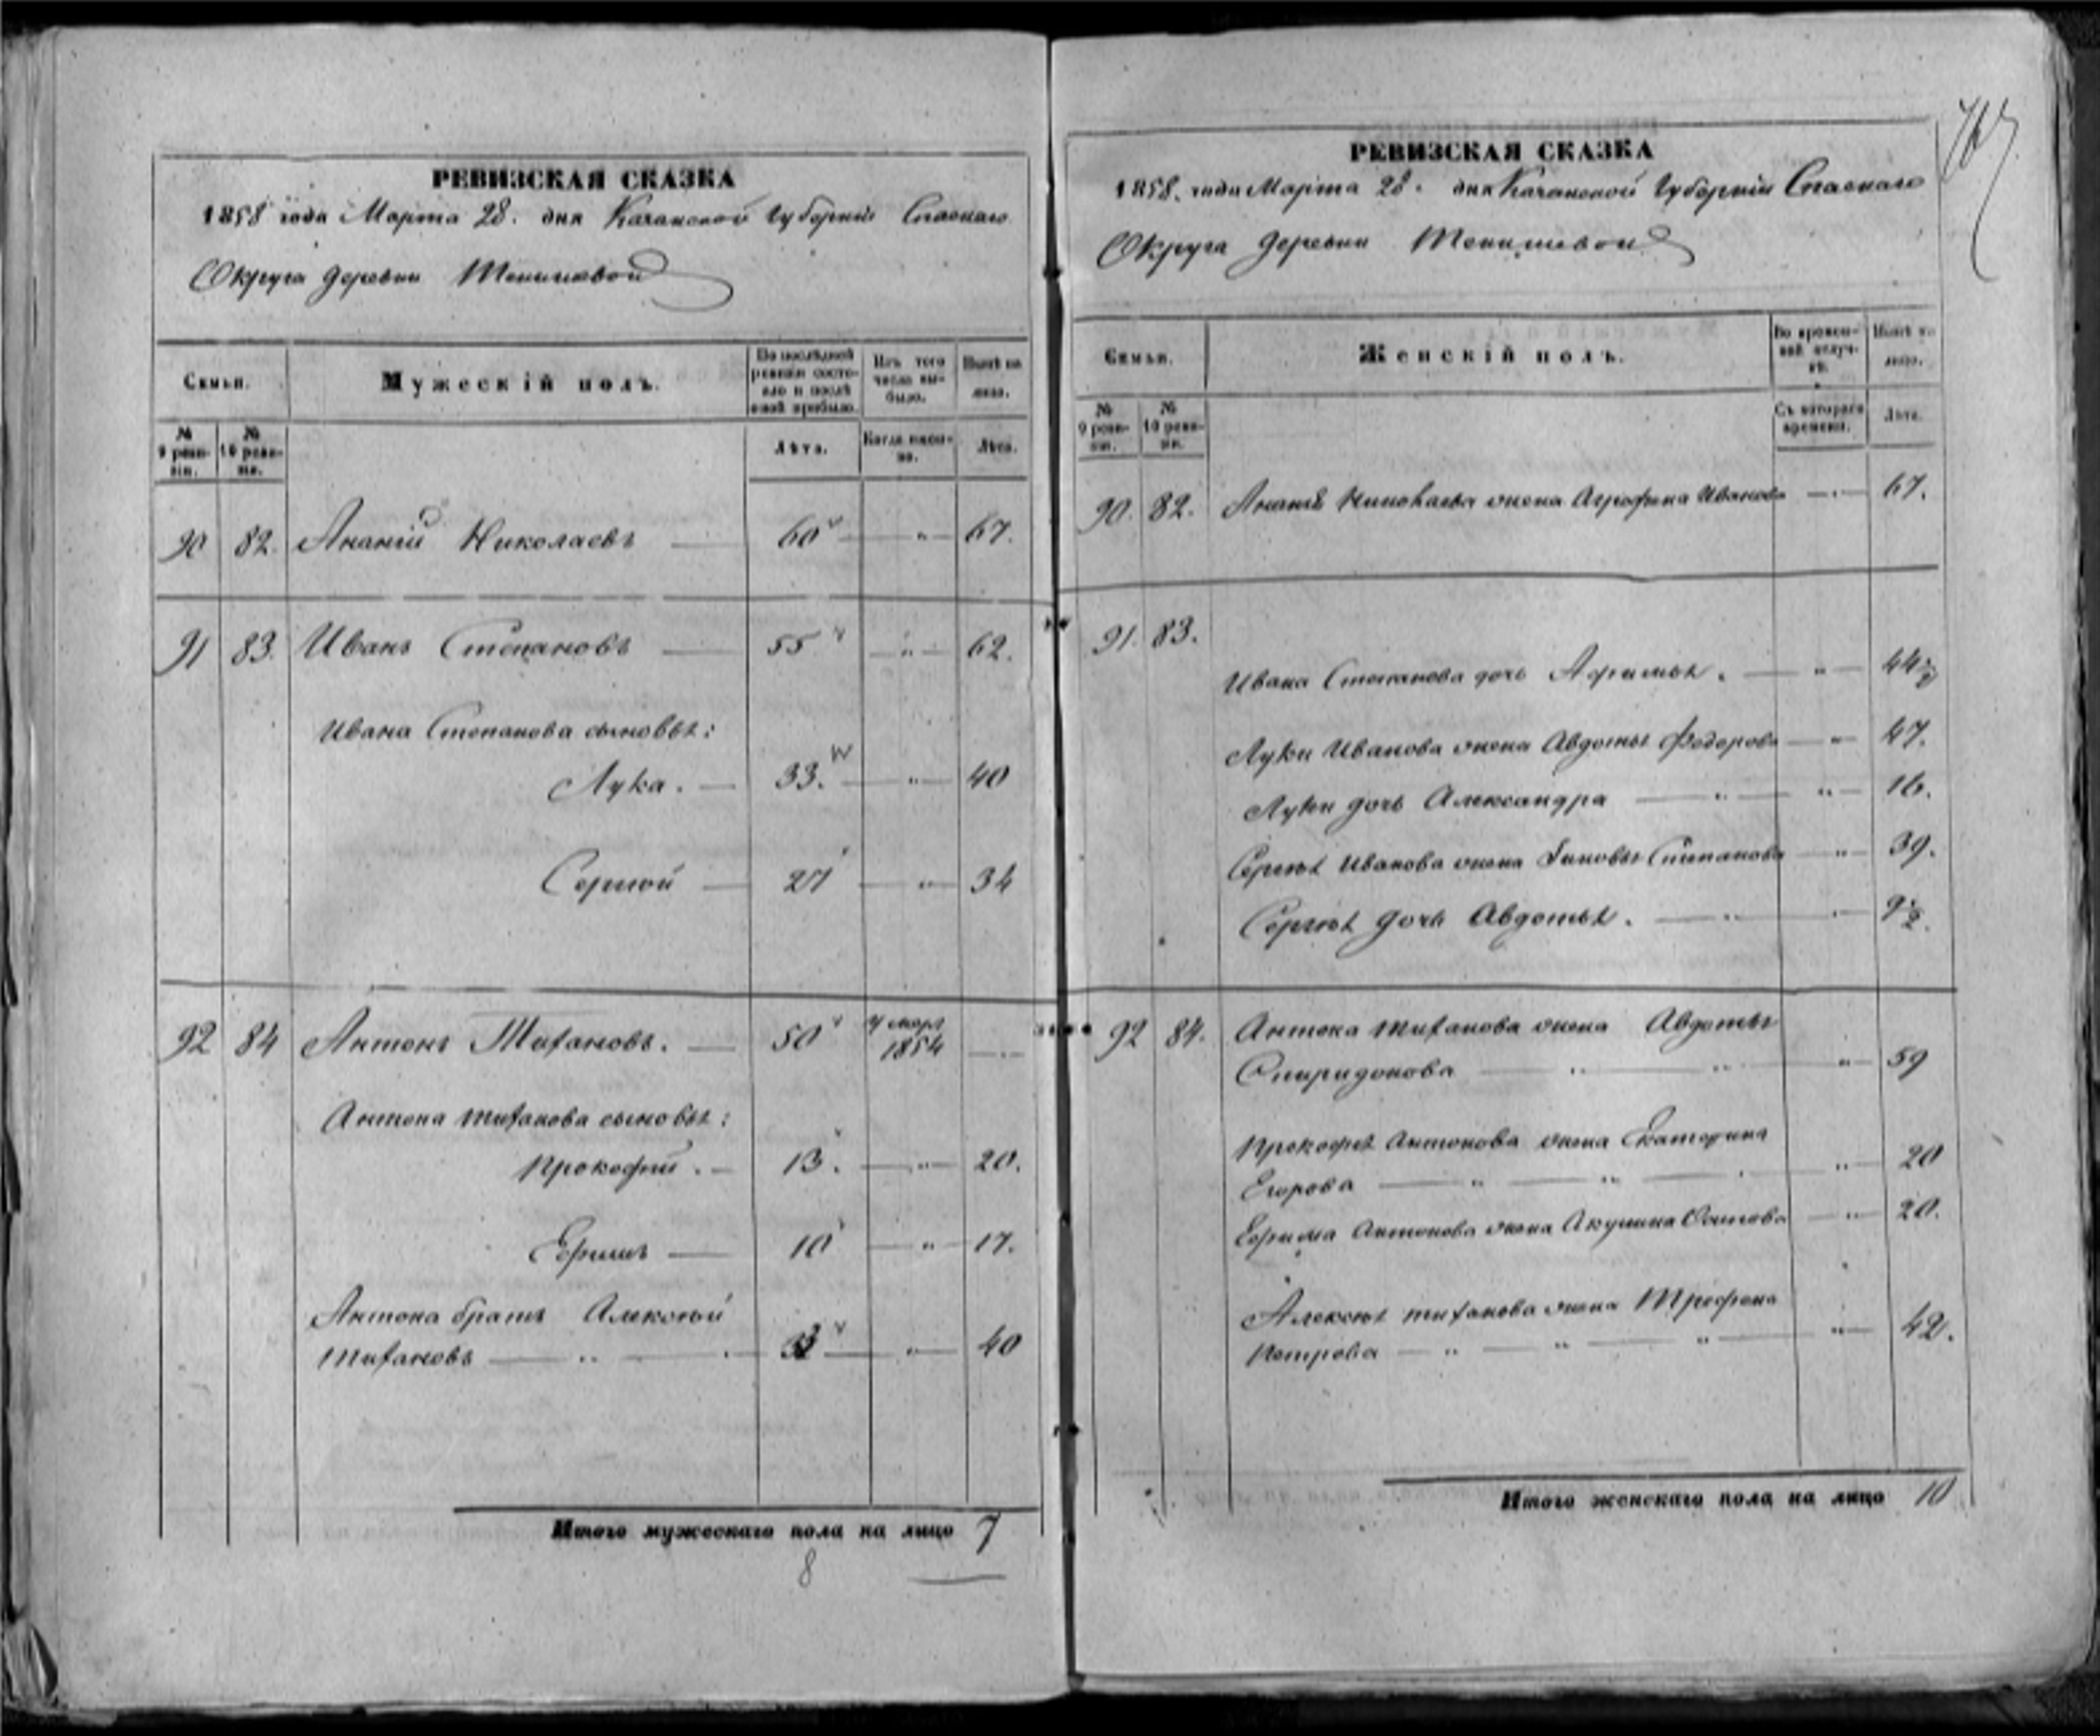 РЕВИЗСКАЯ СКАЗКА
1858 года Марта 28. дня Казанской Губернiи Спаскаго
Округа деревни Тенишевой
Семьи.
Мужескiй полъ.
По послѣдней ревизiи состояло и послѣ оной прибыло.
Изъ того числа выбыло.
Нынѣ на лицо.
№ 9 ревизiи.
№ 10 ревизiи.
Лѣта.
Когда именно.
Лѣта.
90 82. Ананiй Николаевъ 60 " 67.
91 83. Иванъ Степановъ 55 " 62.
Ивана Степанова сыновья:
Лука. 33. " 40
Сергѣй 27 " 34
92 84 Антонъ Тихановъ. 50 1854
Антона Тиханова сыновья:
Прокофiй. 13. " 20.
Ефимъ 10 " 17.
Антона братъ Алексѣй
Тихановъ " " 40
Итого мужескаго пола на лицо 7
8
РЕВИЗСКАЯ СКАЗКА
1858. года Марта 28. дня Казанской Губернiи Спаскаго
Округа деревни Тенишевой
Семьи.
Женскiй полъ.
Во временной отлучкѣ.
Нынѣ на лицо.
№ 9 ревизiи.
№ 10 ревизiи.
Съ котораго времени.
Лѣта.
90. 82. Ананiя Николаева жена Агрофена Иванова 67.
91. 83.
Ивана Степанова дочь Афимья. " 44
Луки Иванова жена Авдотья Федорова " 47.
Луки дочь Александра " " 16.
Сергѣя Иванова жена Зиновья Степанова " 39.
Сергѣя дочь Авдотья. " 9
92 84. Антона Тиханова жена Авдотья
Спиридонова " " " 59
Прокофья Антонова жена Екатерина
Егорова " " " 20
Ефима Антонова жена Акулина Осипова " 20.
Алексѣя Тиханова жена
Петрова " " " " 42.
Итого женскаго пола на лицо 10